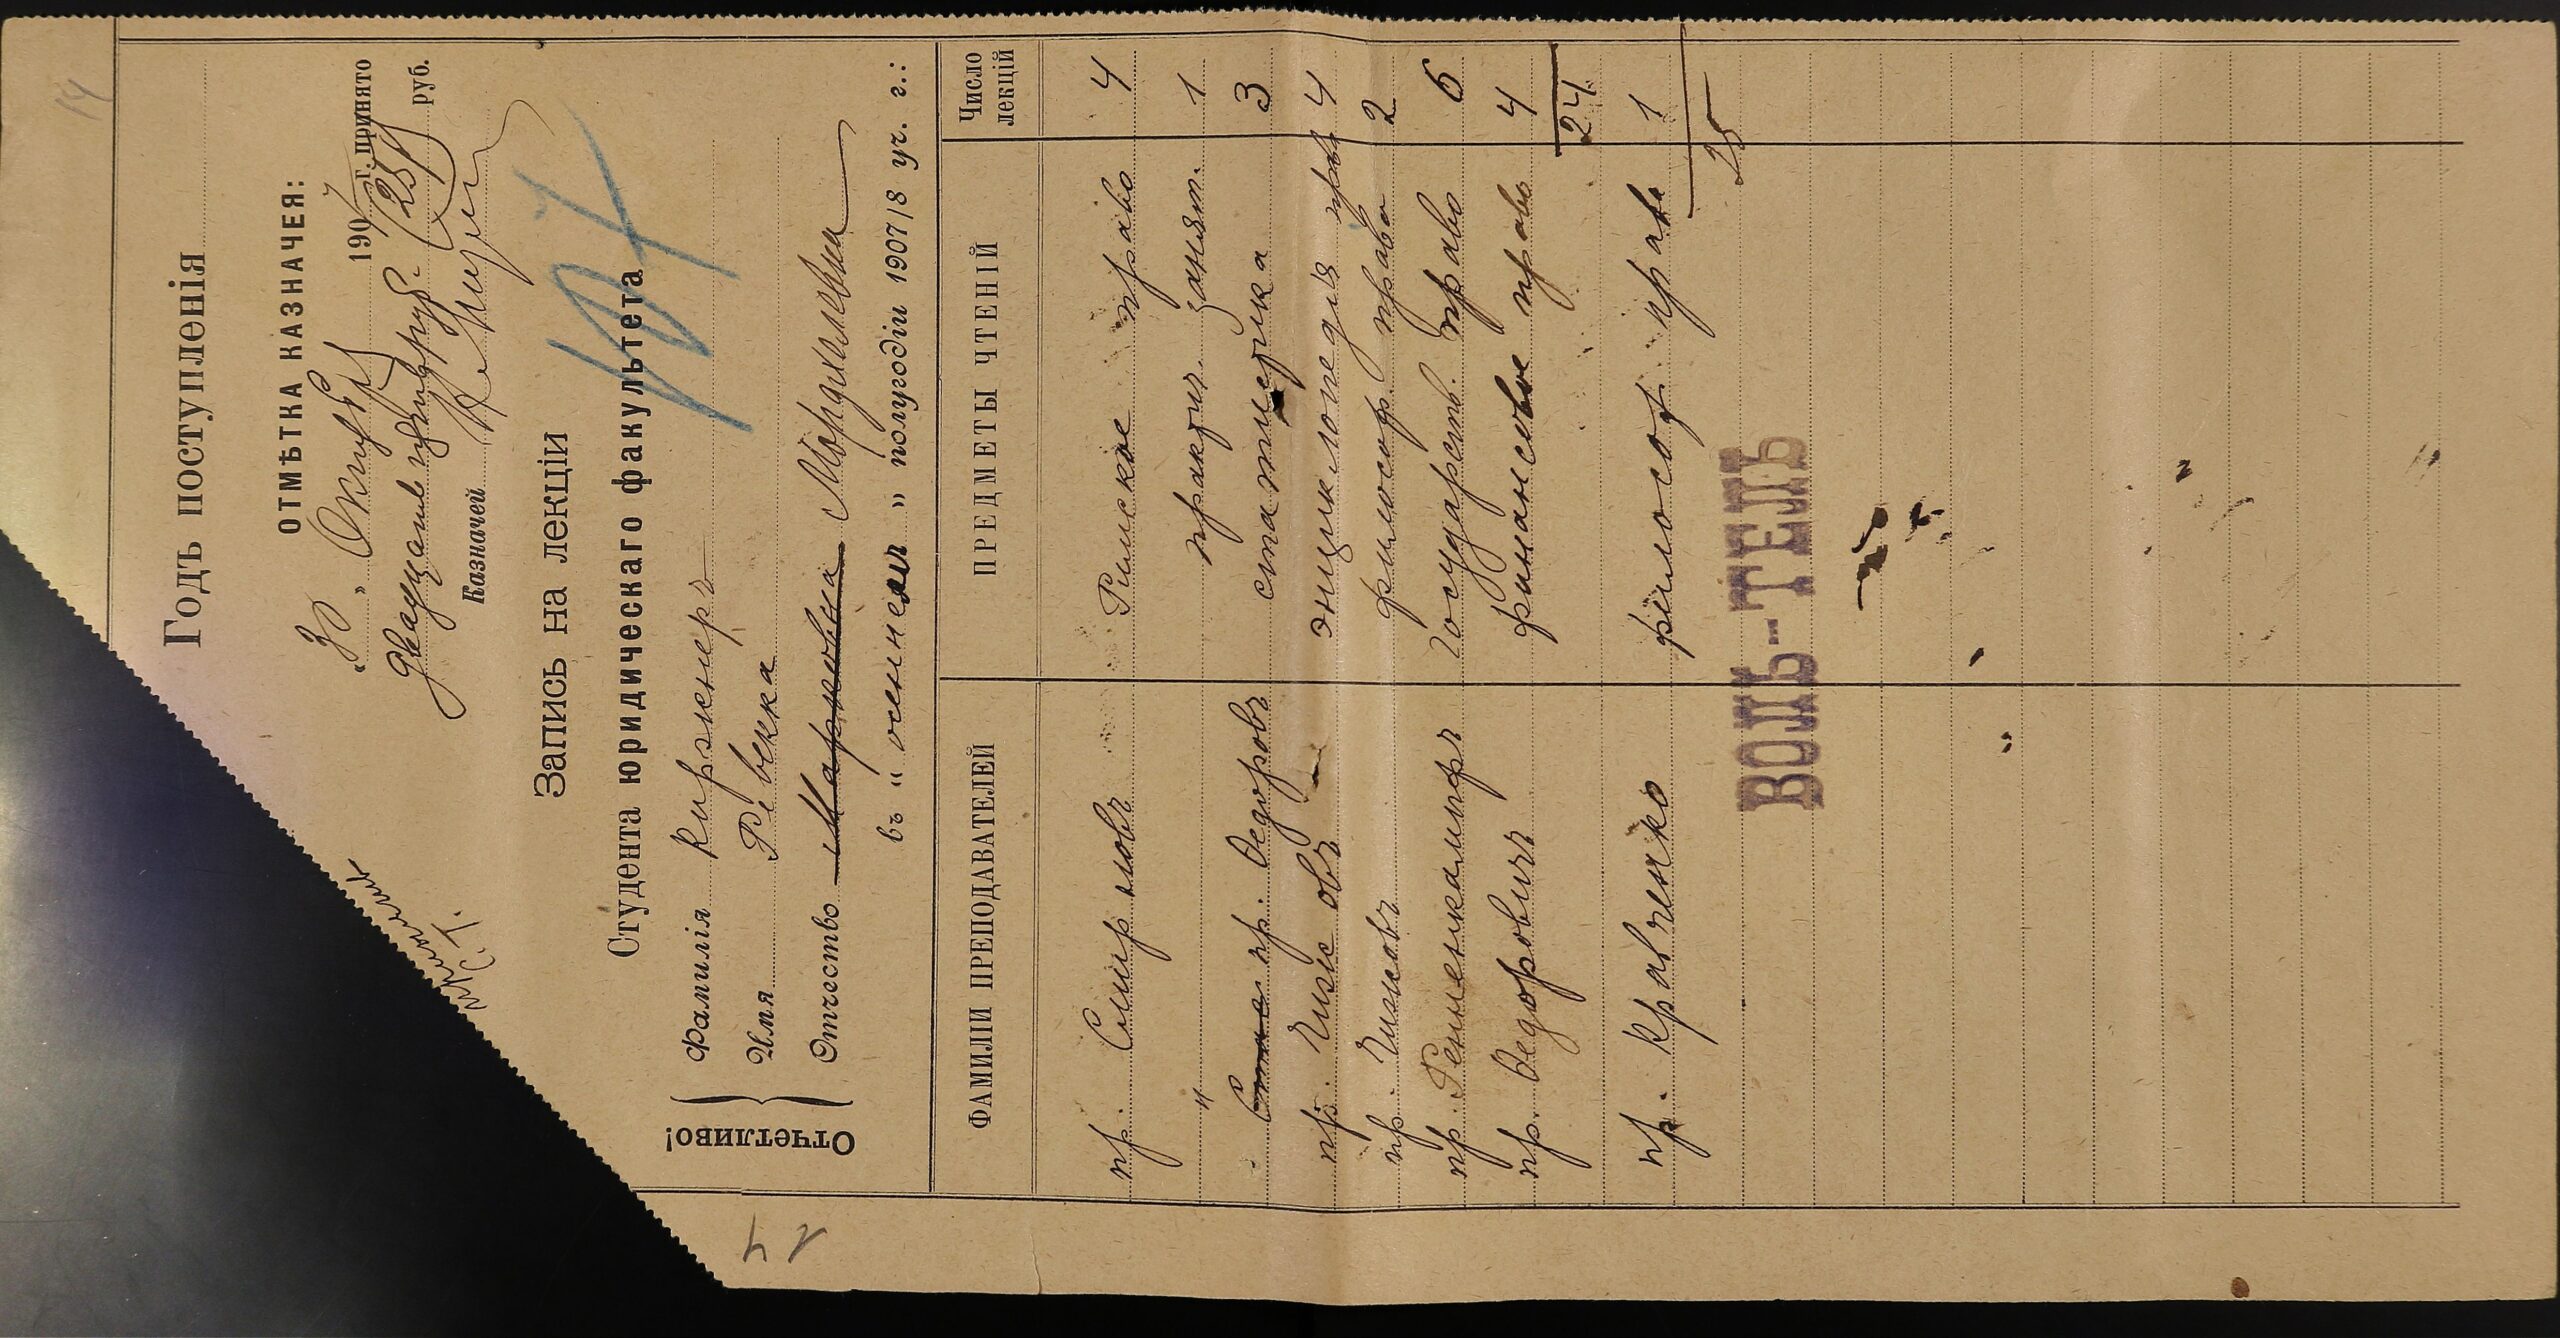 14
Годъ поступленія
ОТМѢТКА КАЗНАЧЕЯ:
„30 „ Октября 1907 г. принято
двадцать пять руб. (25 р) руб.
Казначей
Запись на лекціи
Студента юридическаго факультета
Отчетливо!
Фамилія Киржнеръ
Имя Ревекка
Отчество Марковна Мордхелевна
въ “ осеннемъ „ полугодіи 1907/8 уч. г.:
ФАМИЛИ ПРЕПОДАВАТЕЛЕЙ ПРЕДМЕТЫ ЧТЕНІЙ Число лекцій
пр. Смирновъ Римское право 4
" практич. занят. 1
пр. Ѳедоровъ статистика 3
пр. Чижовъ энциклопедія прав 4
пр. Чижовъ философ. право 2
пр. Ренненкампфъ государств. право 6
пр. Ѳедоровичъ финансовое право 4
24
пр. Кравченко философ. права 1
25
ВОЛЬ-ТЕЛЬ